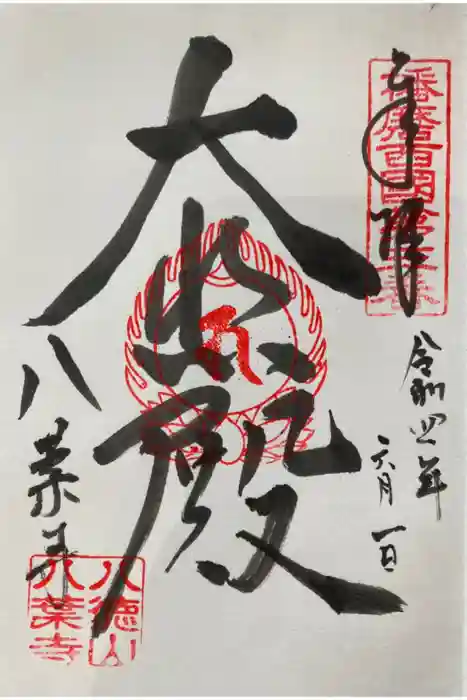 奉拝
播磨西國
令和四年
六月一日
大悲殿
八葉寺
八徳山
八葉寺